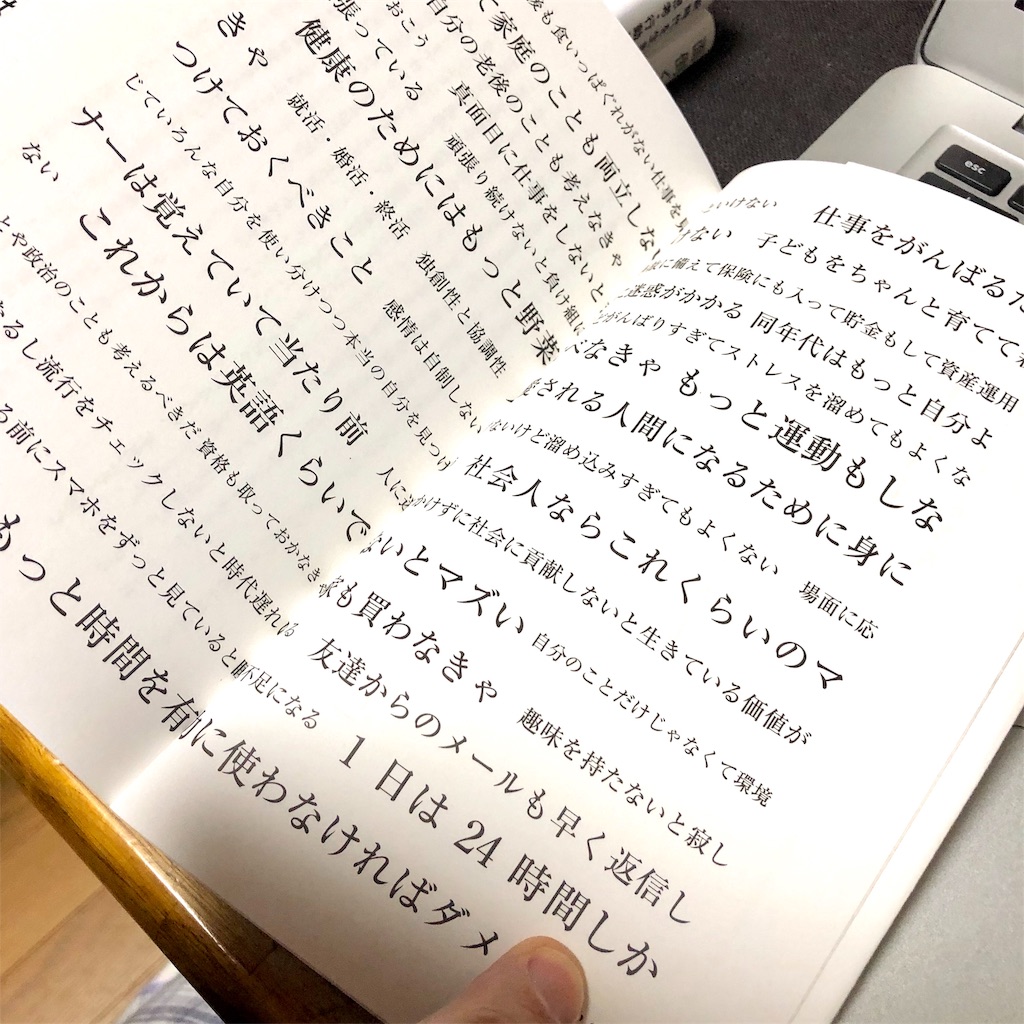 も食いっぱぐれがない仕事を いけない 仕事をがんばるた
て家庭のことも両立しな ない 子どもをちゃんと育てて
自分の老後のことも考えなきゃ に備えて保険にも入って貯金もして資産運用
おこう 真面目に仕事をしないと 迷惑がかかる 同年代はもっと自分よ
張っている 頑張り続けないと負け組 がんばりすぎてストレスを溜めてもよくな
健康のためにはもっと野菜 べなきゃ もっと運動もしな
きゃ 就活・婚活・終活 独創性と協調性 される人間になるために身に
つけておくべきこと 感情は自制しない ないけど溜め込みすぎてもよくない 場面に応
じていろんな自分を使い分けつつ本当の自分を見つけ 社会人ならこれくらいのマ
ナーは覚えていて当たり前 人に かけずに社会に貢献しないと生きている価値が
ない これからは英語くらいで ないとマズい 自分のことだけじゃなくて環境
とや政治のことも考えるべきだ 資格も取っておかなき も買わなきゃ 趣味を持たないと寂し
なるし流行をチェックしないと時代遅れ 友達からのメールも早く返信し
る前にスマホをずっと見ていると 不足になる 1日は24時間しか
もっと時間を有 に使わなければダメ
esc